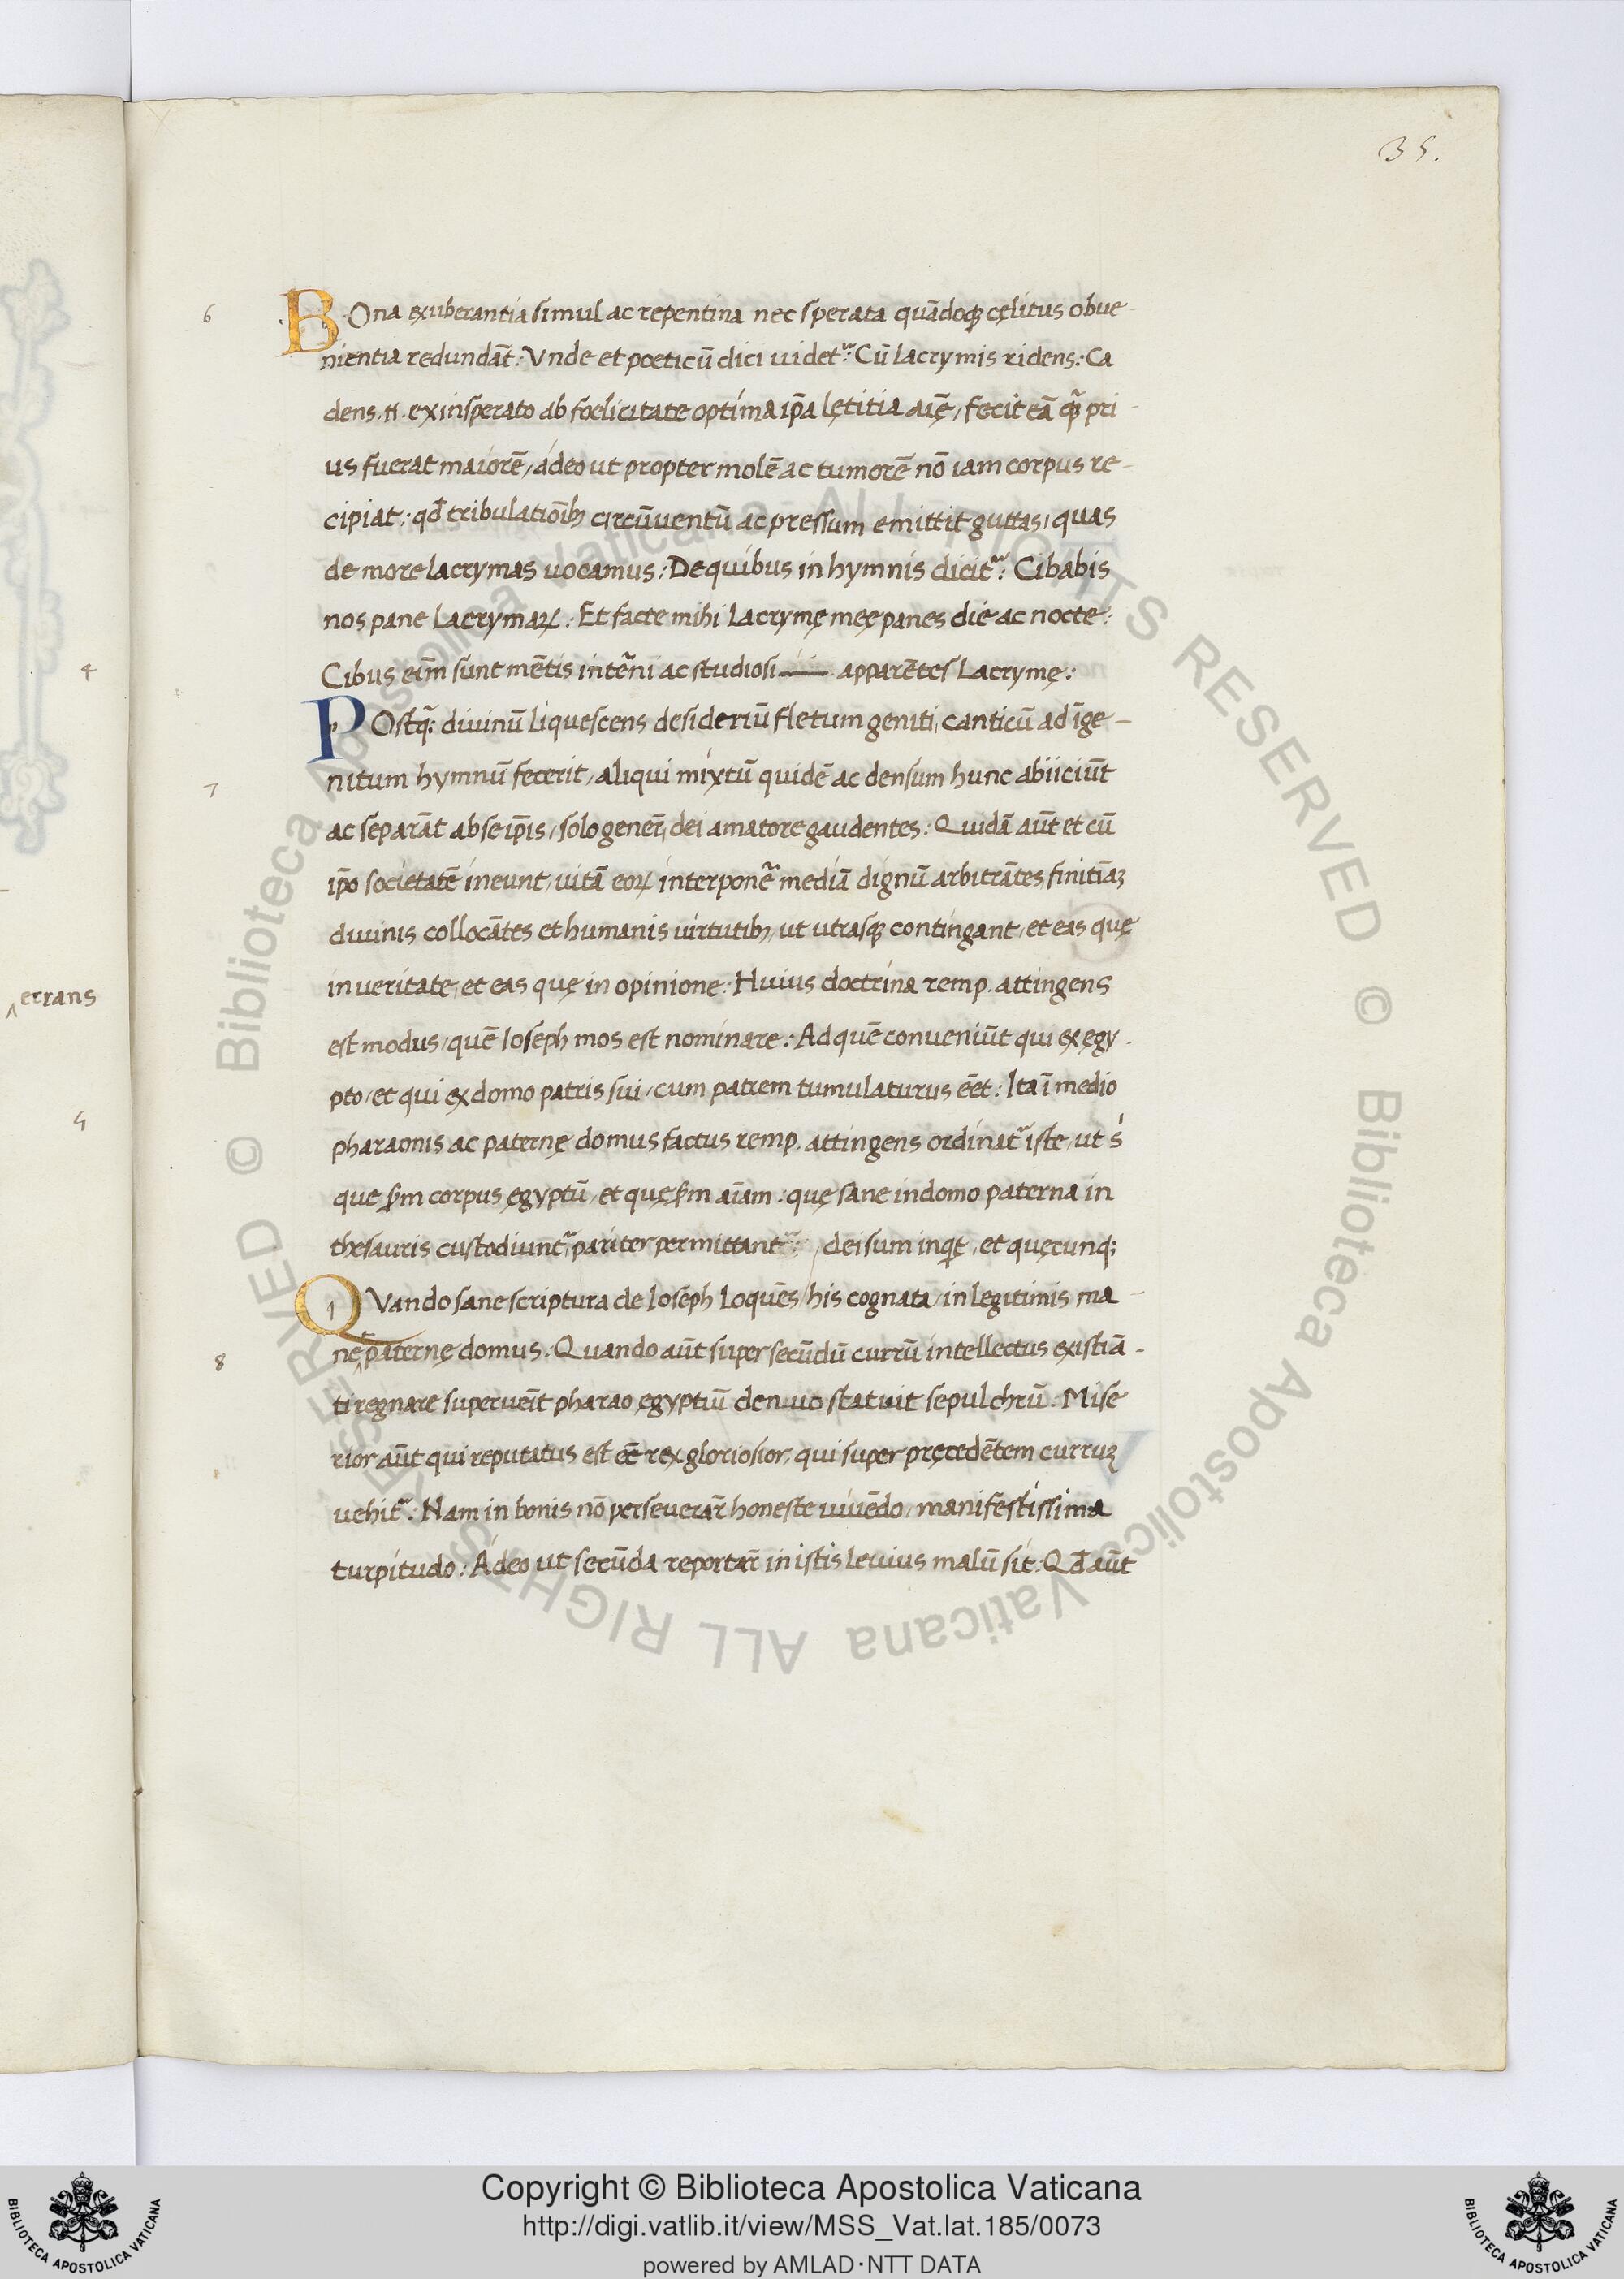 35.
6
BOna exuberantia simul ac repentina nec sperata quādoqꝫ cęlitus obue-
nientia redundāt: Vnde et poeticū dici uidetᷣ: Cū lacrymis ridens: Ca
dens .n. ex insperato ab foelicitate optima ip̄a lętitia aīę, fecit eā q̄ pri-
us fuerat maiorē, adeo ut propter molē ac tumorē nō iam corpus re-
cipiat: qd̄ tribulatiōibꝫ circūuentū ac pressum emittit guttas, quas
de more lacrymas uocamus: De quibus in hymnis dicitᷣ: Cibabis
nos pane lacrymaꝝ: Et facte mihi lacrymę męę panes die ac nocte:
4
Cibus eīm sunt mētis intᷣni ac studiosi apparētes lacrymę:
POstq̄ᷓ diuinū liquescens desideriū fletum geniti, canticū ad īge-
7
nitum hymnū fecerit, aliqui mixtū quidē ac densum hunc abiiciūt
ac separāt ab se ip̄is, solo generꝭ dei amatore gaudentes: Quidā aūt et cū
ip̄o societatē ineunt, uitā eoꝝ interponeᷓ mediā dignū arbitrātes, finitiāꝫ
diuinis collocātes et humanis uirtutibꝫ, ut utrasqꝫ contingant, et eas quę
in ueritate, et eas quę in opinione: Huius doctrina remp. attingens
errans
est modus, quē Ioseph mos est nominare: Ad quē conueniūt qui ex ęgy-
pto, et qui ex domo patris sui, cum patrem tumulaturus eēt: Ita ī medio
5
pharaonis ac paternę domus factus remp. attingens ordinatᷣ iste, ut s
que s̄m corpus ęgyptū, et quę s̄m aīam: quę sane in domo paterna in
thesauris custodiuntᷣ, pariter permittantᷣ: dei sum inqͥt, et quęcunqꝫ
QVando sane scriptura de Ioseph loquēs, his cognata, in legitimis ma-
8
nęt paternę domus. Quando aūt super secūdū currū intellectus existiā-
ti regnare superuēit pharao ęgyptiū denuo statuit sepulchrū. Mise
rior aūt qui reputatus est eē rex gloriosior, qui super pręcedētem curruꝫ
uehitᷣ: Nam in bonis nō perseuerar̄ honeste uiuēdo, manifestissima
turpitudo: Adeo ut secūda reportar̄ in istis leuius malū sit: Qd̄ aūt
© Biblioteca Apostolica Vaticana ALL RIGHTS RESERVED © Biblioteca Apostolica Vaticana ALL RIGHTS RESERVED
BIBLIOTECA APOSTOLICA VATICANA
Copyright © Biblioteca Apostolica Vaticana
http://digi.vatlib.it/view/MSS_Vat.lat.185/0073
powered by AMLAD·NTT DATA
BIBLIOTECA APOSTOLICA VATICANA